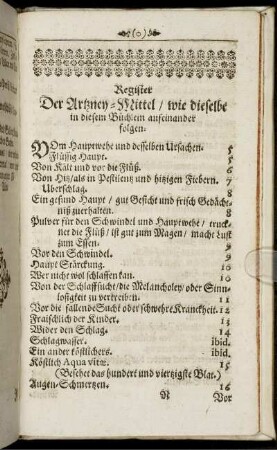 (o)
Register
Der Artzney-Mittel / wie dieselbe
in diesem Büchlein auseinander
folgen.
VOm Hauptwehe und desselben Ursachen. 5
Flüssig Haupt. 5
Von Kält und vor die Flüß. 6
Von Hitz/als in Pestilentz und hitzigen Fiebern. 7
Uberschlag. 8
Ein gesund Haupt / gut Gesicht und frisch Gedächt-
nüß zuerhalten. 8
Pulver für den Schwindel und Hauptwehe / truck-
net die Flüß / ist gut zum Magen / macht Lust
zum Essen. 9
Vor den Schwindel. 9
Haupt Stärckung. 10
Wer nicht wol schlaffen kan. 10
Von der Schlaffsucht / die Melancholey oder Sinn-
losigkeit zu vertreiben. 11
Vor die fallende Sucht oder schwehre Kranckheit. 12
Fraischlich der Kinder. 13
Wider den Schlag. 14
Schlagwasser. ibid.
Ein ander köstlichers. ibid.
Köstlich Aqua vitæ. 15
(Besehet das hundert und viertzigste Blat.)
Augen-Schmertzen. 16
Vor